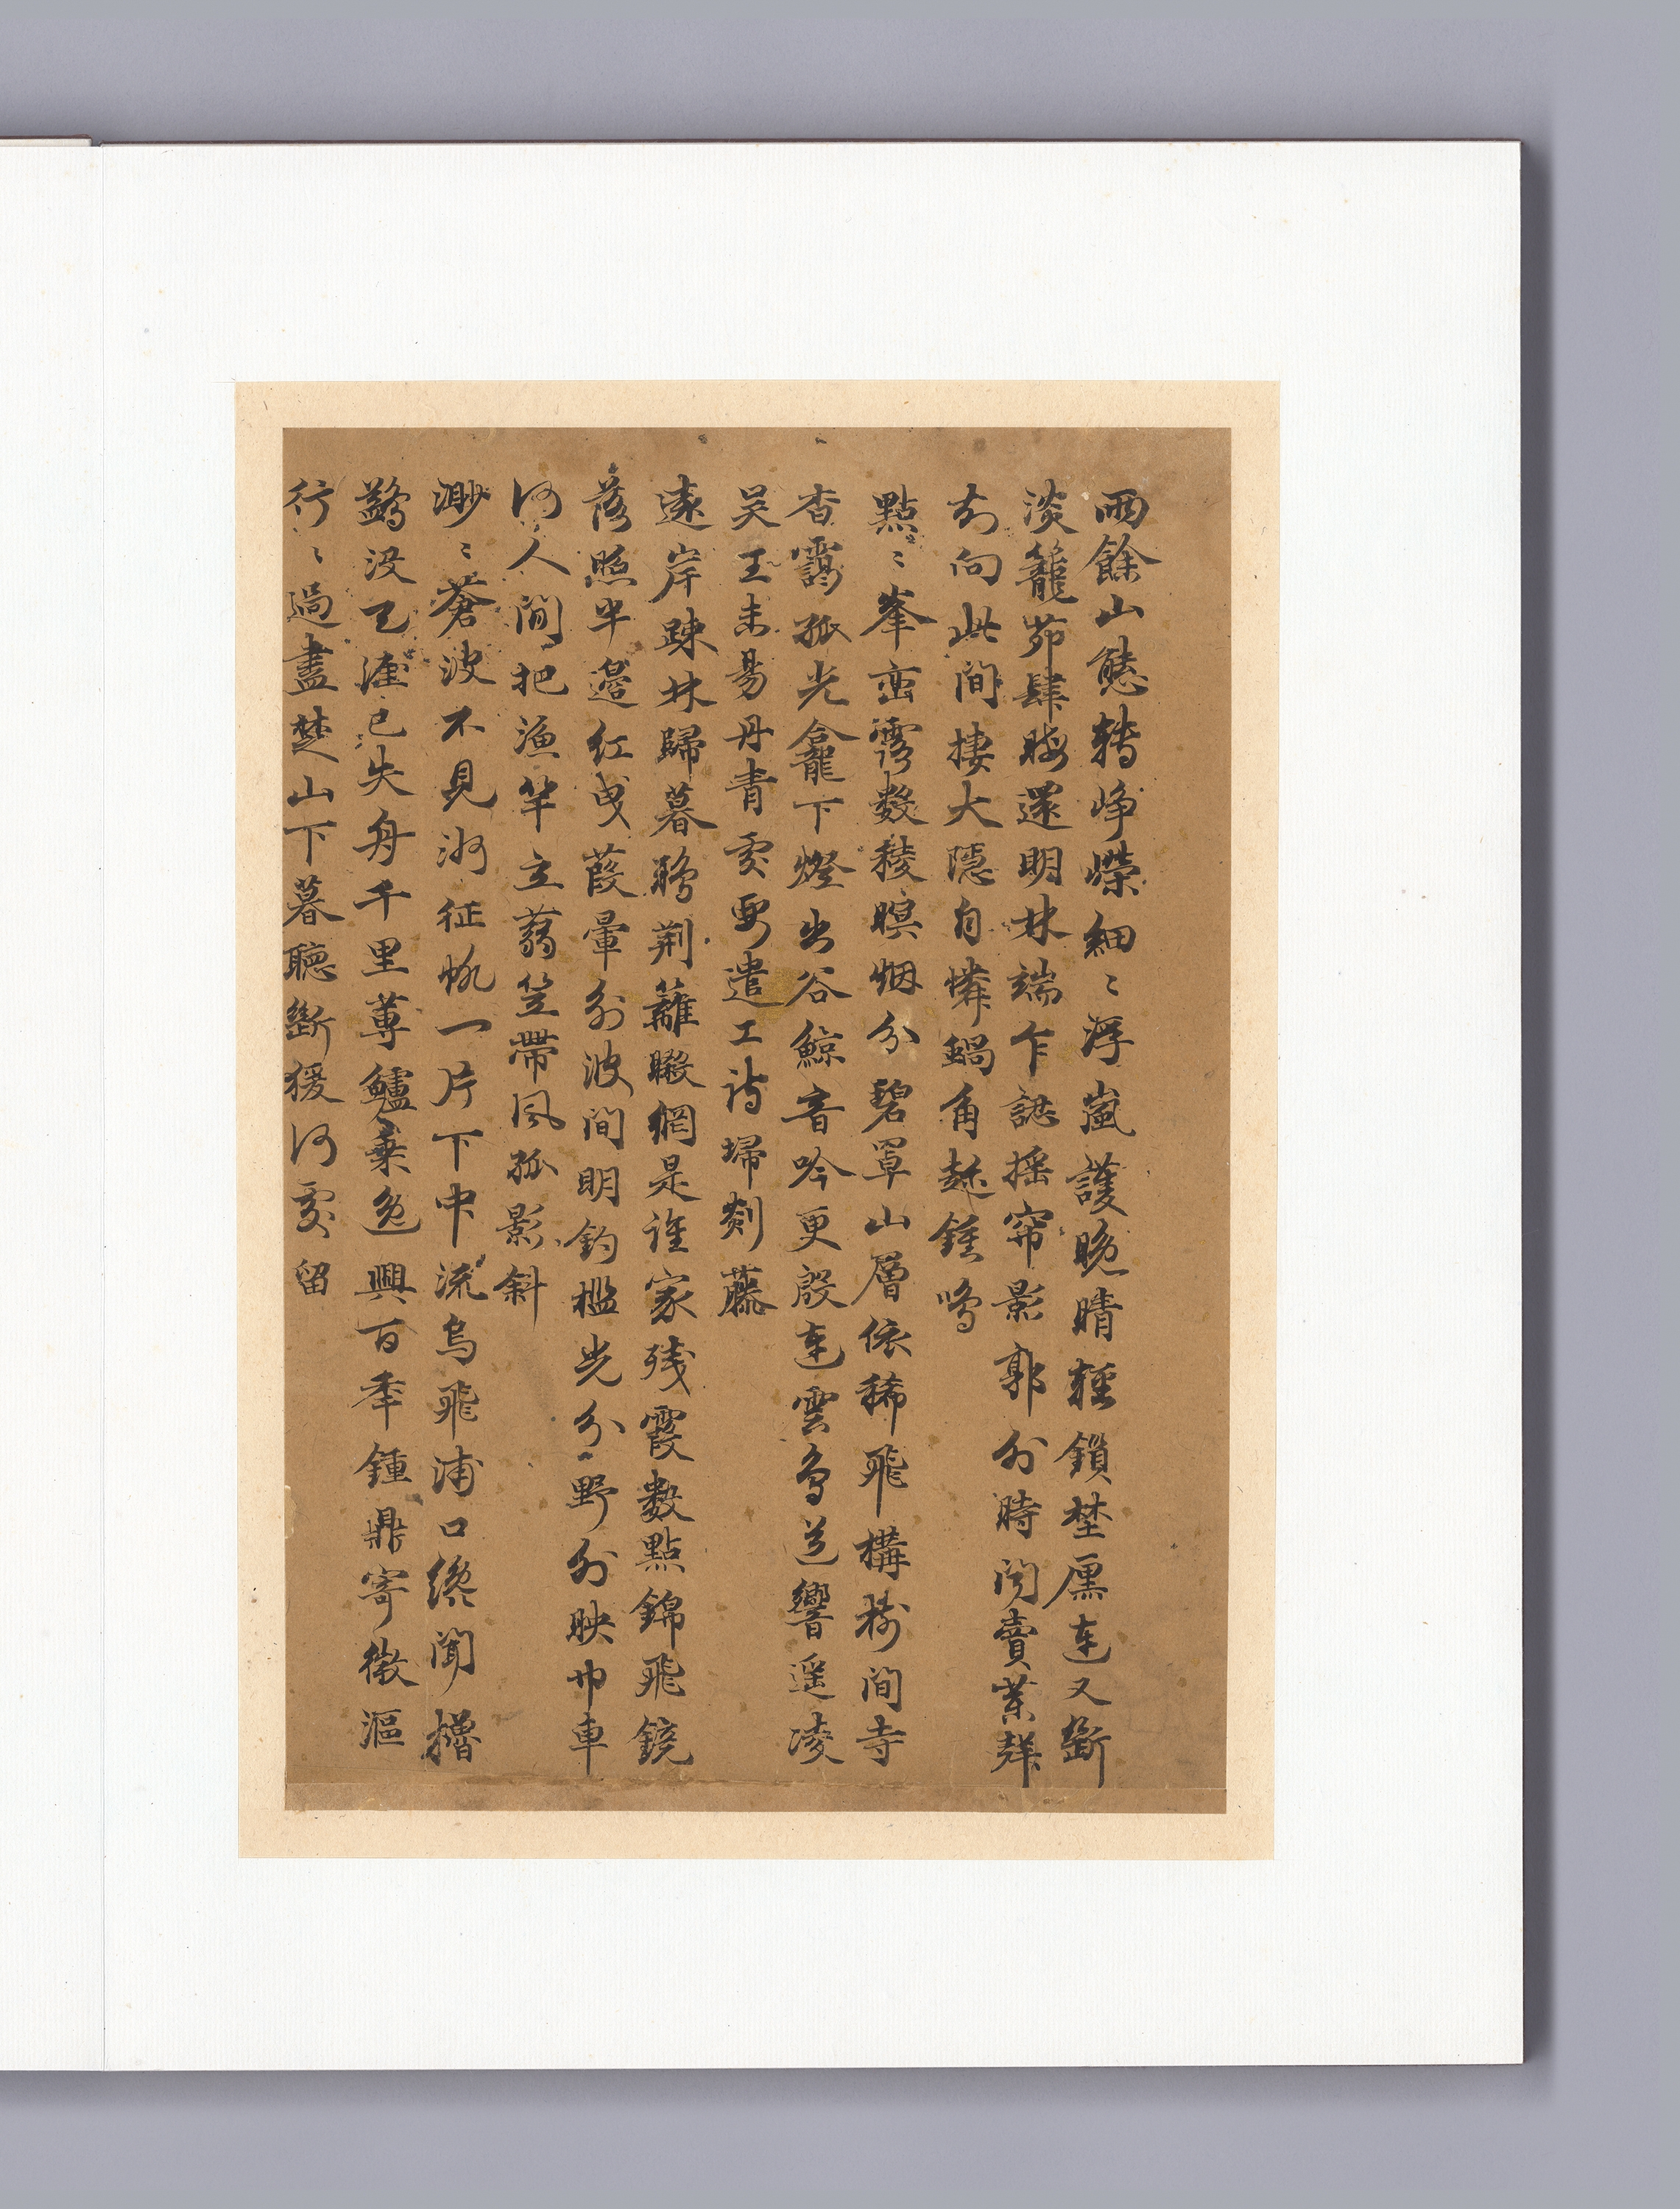 雨餘山態轉崢嶸細〻浮嵐護晚晴輕鎖埜廛連又斷
淡籠茆肆晦還明林端乍認搖帘影郭外時闻賣業聲
好向此間棲大隱自憐蝸角趍鍾鳴
點〻峯巒靄数稜暝烟分碧罩山層依稀飛構林間寺
杳靄孤光龕下燈出谷鯨音吟更殷連雲鳥道響遥凌
吴王未易丹青處要遣工詩掃剡藤
遠岸踈林歸暮鴉荆籬曬網是誰家残霞數點錦飛鏡
落照半邊紅曳葭暈外波間明釣檻光分野外映巾車
何人閒把漁竿立蒻笠帶風孤影斜
渺〻蒼波不見洲征帆一片下中流烏飛浦口纔聞櫓
鷁没天涯已失舟千里蓴鱸乗逸興百年鍾鼎寄微漚
行〻過盡楚山下暮聽斷猨何處留